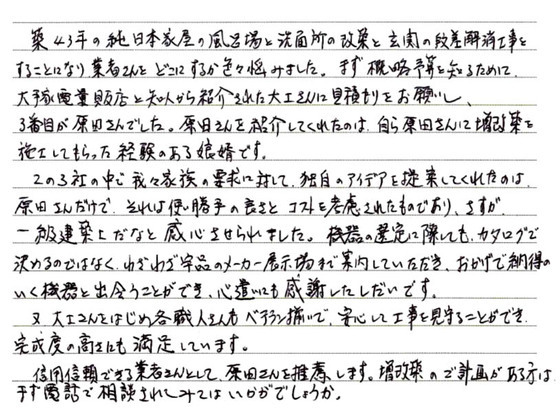 築43年の純日本家屋の風呂場と洗面所の改築と玄関の段差解消工事を
することになり業者さんをどこにするか色々悩みました。まず概略予算を知るために、
大手家電量販店と知人から紹介された大工さんに見積もりをお願いし、
3番目が原田さんでした。原田さんを紹介してくれたのは、自ら原田さんに増改築を
施工してもらった経験のある娘婿です。
この3社の中で我々家族の要求に対して、独自のアイデアを提案してくれたのは、
原田さんだけで、それは使い勝手の良さとコストを考慮されたものであり、さすが
一級建築士だなと感心させられました。機器の選定に際しても、カタログで
決めるのではなく、わざわざ各品のメーカー展示場まで案内していただき、おかげで納得の
いく機器と出会うことができ、心遣いにも感謝したしだいです。
又、大工さんをはじめ各職人さんもベテラン揃いで、安心して工事を見守ることができ、
完成度の高さにも満足しています。
信用信頼できる業者さんとして、原田さんを推薦します。増改築のご計画がある方は、
まず電話で相談されてみてはいかがでしょうか。